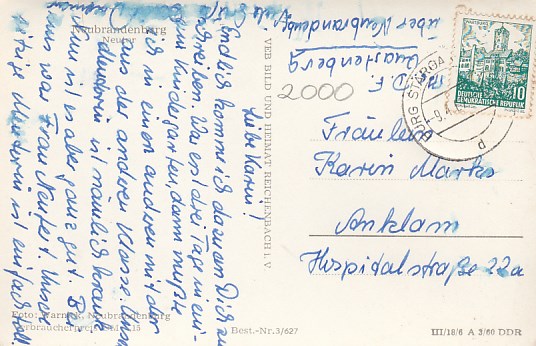 Neubrandenburg
Neutor
Liebe Karin!
Endlich komme ich dazu an Dich zu
schreiben. War erst drei Tage in ei-
nem Kindergarten, dann mußte
ich in einen anderen mit der
aus der anderen Klasse.
ist nämlich krank
ist es aber ganz gut. Bei
uns war Frau Neufert. Unsre
ist einfach toll.
Viele Grüße
Foto: Warnke, Neubrandenburg
VEB BILD UND HEIMAT REICHENBACH i. V
Best.-Nr. 3/627
2000
Quastenberg
über Neubrandenburg
WARTBURG
DEUTSCHE
DEMOKRATISCHE REPUBLIK
10
BURG STARGARD
d
Fräulein
Karin Marks
Anklam
Hospitalstraße 22a
III/18/6 A 3/60 DDR